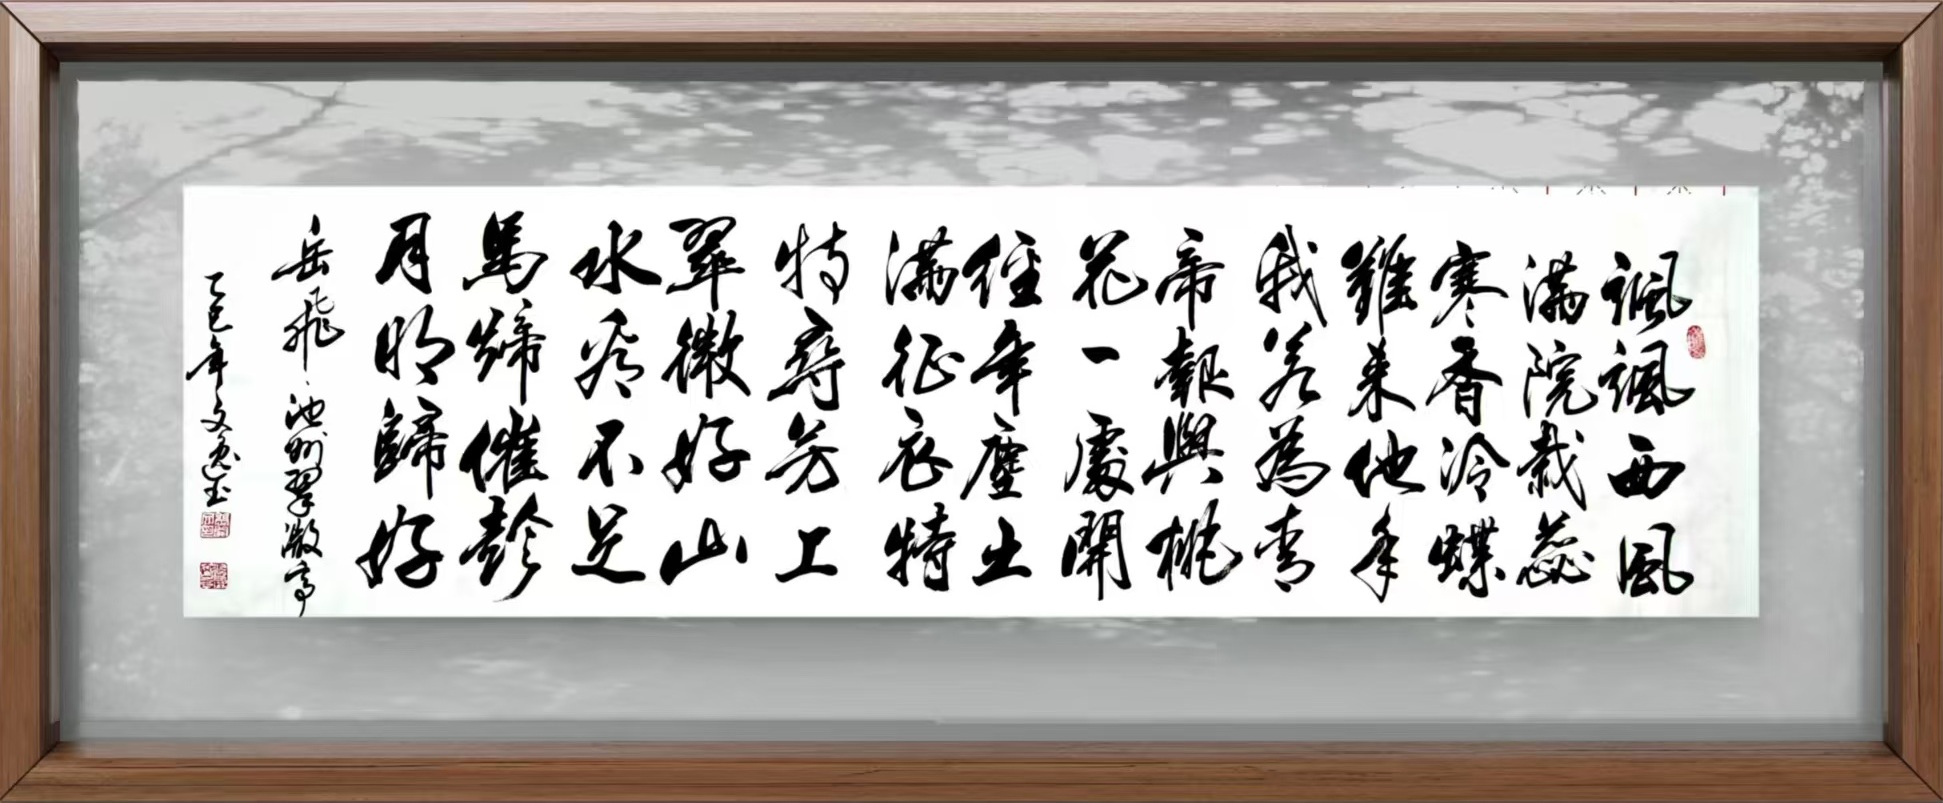 颯颯西風
滿院栽蕊
寒香冷蝶
難来他年
我若為青
帝報與桃
花一處開
經年塵土
滿征衣特
特尋芳上
翠微好山
水看不足
馬蹄催趁
月明歸好
岳飛池州翠微亭
乙巳年文逸